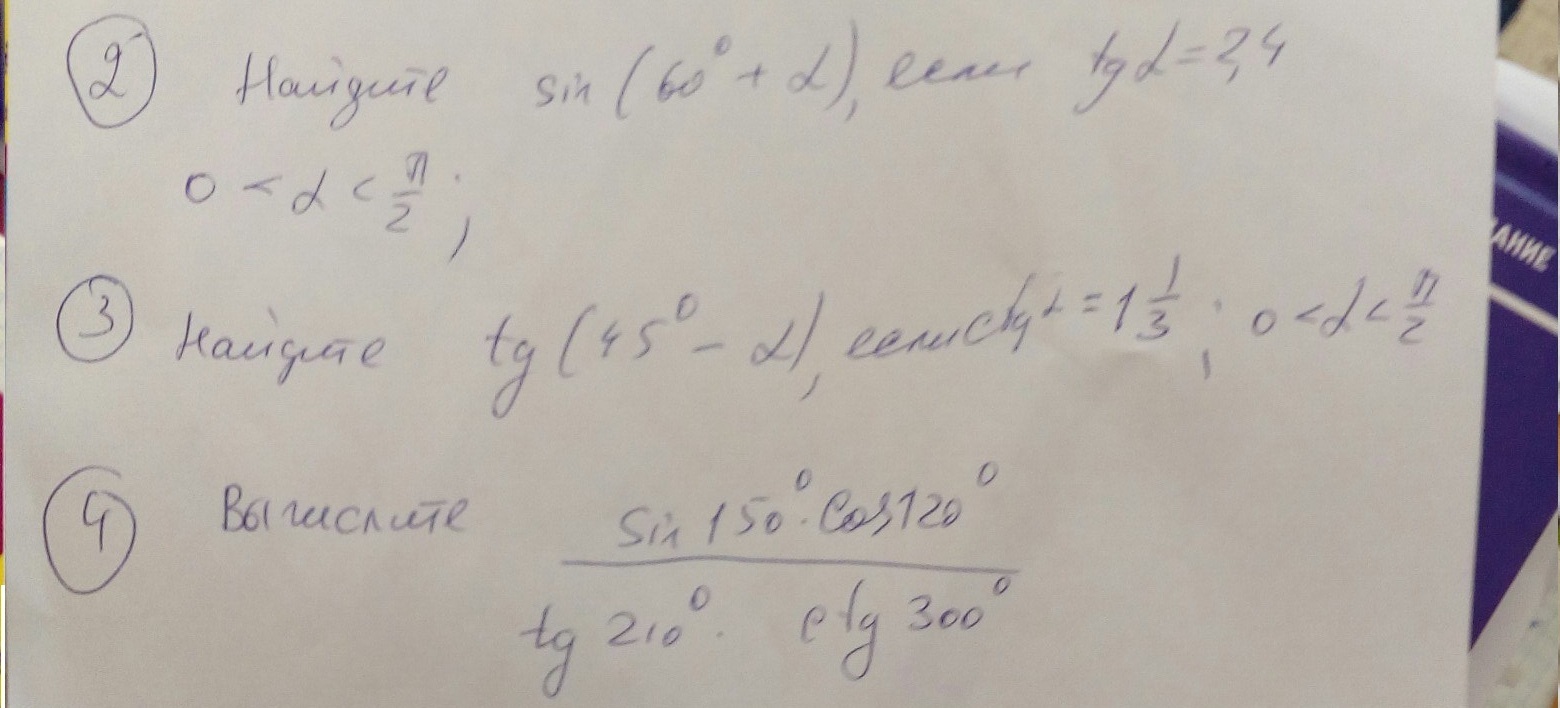 2 Найдите sin (60° + α), если tg α = 2,4
0 < α < π/2 ;
3 Найдите tg (45° - α), если ctg α = 1 1/3 ; 0 < α < π/2
4 Вычислите sin 150° · cos 120°
tg 210° · ctg 300°
АНИЕ